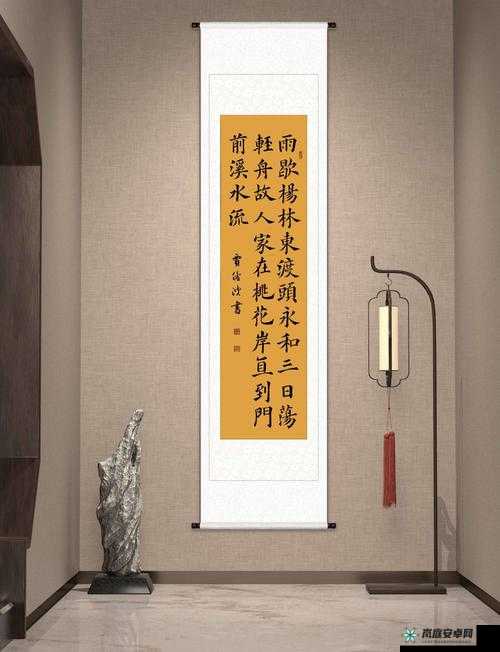 雨歇楊林東渡頭永和三日蕩
輕舟故人家在桃花岸直到門
前溪水流
書
岚庭安卓网